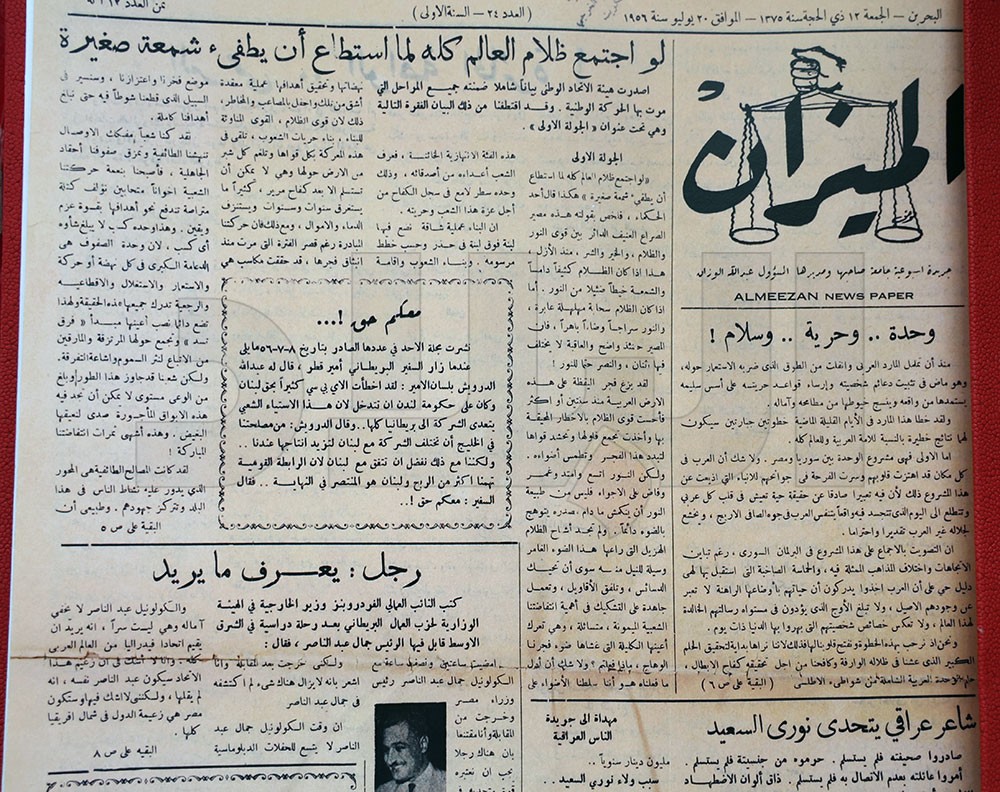 البحرين – الجمعة ١٢ ذي الحجة سنة ١٣٧٥ – الموافق ٢٠ يوليو سنة ١٩٥٦
( العدد ٢٤ – السنة الاولى )
الميزان
جريدة اسبوعية جامعة صاحبها ومديرها المسؤول عبدالله الوزان
ALMEEZAN NEWS PAPER
وحدة .. وحرية .. وسلام !
منذ أن تململ المارد العربي وانفلت من الطوق الذي ضربه الاستعمار حوله،
وهو ماض في تثبيت دعائم شخصيته وإرساء قواعد حريته على أسس سليمة
يستمدها من واقعه وينسج خيوطها من مطامحه وآماله
ولقد خطا هذا المارد في الأيام القليلة الماضية خطوتين جبارتين سيكون
لهما نتائج خطيرة بالنسبة للامة العربية وللعالم كله.
اما الاولى فهي مشروع الوحدة بين سوريا ومصر. ولا شك أن العرب في
كل مكان قد اهتزت قلوبهم وسرت الفرحة في جوانحهم للانباء التي اذيعت عن
هذا المشروع ذلك لأن فيه تعبيرا صادقا عن حقيقة حية تعيش في قلب كل عربي
وتتطلع الى اليوم الذي تتجسد فيه واقعاً يتنفس العرب في جوه الصافي الاريج، ويخشع
لجلاله غير العرب تقديرا واحتراما.
ان التصويت بالاجماع على هذا المشروع في البرلمان السوري، رغم تباين
الاتجاهات واختلاف المذاهب الممثلة فيه، والحماسة الصاخبة التي استقبل بها لهي
دليل حي على أن العرب اخذوا يدركون أن حياتهم بأوضاعها الراهنة لا تعبر
عن وجودهم الاصيل، ولا تبلغ الأوج الذي يؤدون في مستواه رسالتهم الخالدة
لهذا العالم، ولا تعكس خصائص شخصيتهم التي بهروا بها الدنيا ذات يوم.
ونحن اذ نرحب بهذه الخطوة ونفتح قلوبنا لها فذلك لاننا نراها بداية لتحقيق الحلم
الكبير الذي عشنا في ظلاله الوارفة وكافحنا من اجل تحقيقه كفاح الابطال،
حلم الوحدة العربية الشاملة من شواطىء الاطلسي ( البقية على ص ٦ )
شاعر عراقي يتحدى نوري السعيد
صادروا صحيفته فلم يستسلم . حرموه من جنسيته فلم يستسلم .
أمروا عائلته بعدم الاتصال به فلم يستسلم .. ذاق ألوان الاضطهاد
مهداة الى جريدة
الناس العراقية
مليون دينار سنوياً ..
سبب ولاء نوري السعيد ..
لو اجتمع ظلام العالم كله لما استطاع أن يطفيء شمعة صغيرة
اصدرت هيئة الاتحاد الوطني بياناً شاملا ضمنته جميع المراحل التي
مرت بها الحركة الوطنية . وقد اقتطفنا من ذلك البيان الفقرة التالية
وهي تحت عنوان « الجولة الاولى » .
الجولة الاولى
«لو اجتمع ظلام العالم كله لما استطاع
أن يطفيء شمعة صغيرة » هكذا قال أحد
الحكماء، فاخص بقولته هذه مصير
الصراع العنيف الدائر بين قوى النور
والظلام، والخير والشر، منذ الأزل،
هذا اذا كان الظلام كثيفاً دامساً
والشمعة خيطاً ضئيلا من النور. أما
اذا كان الظلام سحابة مهلهلة عابرة،
والنور سراجاً وضاءاً باهراً، فان
المصير حينئذ واضح والعاقبة لا يختلف
فيها اثنان، والنصر حتماً للنور !
لقد بزغ فجر اليقظة على هذه
الارض العربية منذ سنتين أو اكثر
فأحست قوى الظلام بالاخطار المحيقة
بها وأخذت تجمع فلولها وتحشد قواها
لتبدد هذا الفجر وتطمس أضواءه .
ولكن النور اتسع وامتد وغمر
وفاض على الاجواء فليس من طبيعة
النور أن ينكمش ما دام مصدره يتوهج
بالضوء دائماً. ولم تجد أشباح الظلام
الهزيل التي راعها هذا الضوء الغامر
وسيلة للنيل منه سوى أن تحيك
الدسائس، وتلفق الأقاويل، وتعمل
جاهدة على التشكيك في أهمية انتفاضتنا
الشعبية الميمونة، متسائلة، وهي تعرك
أعينها الكليلة التي غشاها ضوء فجرنا
الوهاج، ماذا فعلتم ؟ ولا شك أن أول
ما فعلناه هو أننا سلطنا الأضواء على
هذه الفئة الانتهازية الخائنة، فعرف
الشعب أعداءه من أصدقائه، وذلك
وحده سطر لامع في سجل الكفاح من
أجل عزة هذا الشعب وحريته .
ان البناء عملية شاقة نضع فيها
لبنة فوق لبنة في حذر وحسب خطط
مرسومه . وبناء الشعوب واقامة
نهضاتها وتحقيق أهدافها عملية معقدة
أشق من تلك واحفل بالمصاعب والمخاطر،
ذلك لان قوى الظلام، القوى المناوئة
للبناء، بناء حريات الشعوب، تلقى في
هذه المعركة بكل قواها وتلغم كل شبر
من الارض حولها وهي لا يمكن أن
تستسلم الا بعد كفاح مرير، كثيراً ما
يستغرق سنوات وسنوات ويستنزف
الدماء والاموال، ومع ذلك فان حركتنا
المباركة رغم قصر الفترة التي مرت منذ
انبثاق فجرها، قد حققت مكاسب هي
موضع فخرنا واعتزازنا، وسنسير في
السبيل الذي قطعنا شوطاً فيه حتى نبلغ
أهدافنا كاملة .
لقد كنا شعباً مفكك الاوصال
تنهشنا الطائفية وتمزق صفوفنا أحقاد
الجاهلية، فأصبحنا بنعمة حركتنا
الشعبية اخواناً متحابين نؤلف كتلة
متراصة تندفع نحو أهدافها بقوة عزم
ويقين. وهذا وحده كسب لا يبلغ شأوه
أي كسب، لان وحدة الصفوف هي
الدعامة الكبرى في كل نهضة أو حركة
والاستعمار والاستغلال والاقطاعيه
والرجعية تدرك جميعها هذه الحقيقة ولهذا
تضع دائما نصب أعينها مبدأ « فرق
تسد » وتجمع حولها المرتزقة والمارقين
من الاتباع لنثر السموم واشاعة التفرقة.
ولكن شعبنا قد جاوز هذا الطور وبلغ
من الوعي مستوى لا يمكن أن تجد فيه
هذه الابواق المأجورة صدى لنعيقها
البغيض. وهذه أشهى ثمرات انتفاضتنا
المباركة !
لقد كانت المصالح الطائفية هي المحور
الذي يدور عليه نشاط الناس في هذا
البلد وتتركز جهودهم، وطبيعي أن
البقية على ص ٥
معكم حق !...
نشرت مجلة الاحد في عددها الصادر بتاريخ ٨-٧-٥٦ مايلي
عندما زار السفير البريطاني أمير قطر، قال له عبدالله
الدرويش بلسان الامير : لقد اخطأت الاي بي سي كثيراً بحق لبنان
وكان على حكومة لندن ان تتدخل لان هذا الاستياء الشعبي
يتعدى الشركة الى بريطانيا كلها.. وقال الدرويش : من مصلحتنا
في الخليج أن تختلف الشركة مع لبنان لتزيد انتاجها عندنا ..
ولكننا مع ذلك نفضل ان تتفق مع لبنان لان الرابطة القومية
تهمنا اكثر من الربح ولبنان هو المنتصر في النهاية .. فقال
السفير : معكم حق !..
رجل : يعرف ما يريد
كتب النائب العمالي الفرد روبنز وزير الخارجية في الهيئة
الوزارية لحزب العمال البريطاني بعد رحلة دراسية في الشرق
الاوسط قابل فيها الرئيس جمال عبد الناصر، فقال :
امضيت ساعتين ونصف ساعة مع
الكولونيل جمال عبد الناصر رئيس
وزراء مصر
وخرجت من
المقابلة وأنا مقتنعا
بان هناك رجلا
يجب ان نعتبره
ولكني خرجت بعد المقابلة وانا
اشعر بانه لا يزال هناك شيء لم اكتشفه
في جمال عبد الناصر
ان وقت الكولونيل جمال عبد
الناصر لا يتسع للحفلات الدبلوماسية
والكولونيل عبد الناصر لا يخفي
آماله وهي ليست سراً، انه يريد ان
يقيم اتحادا فيدراليا من العالم العربي
كله . وانا لا اشك في ان زعيم هذا
الاتحاد سيكون عبد الناصر نفسه، انه
لم يقلها، ولكنني لا اشك فيها وستكون
مصر هي زعيمة الدول في شمال افريقيا
كلها .
البقيه على ص ٨